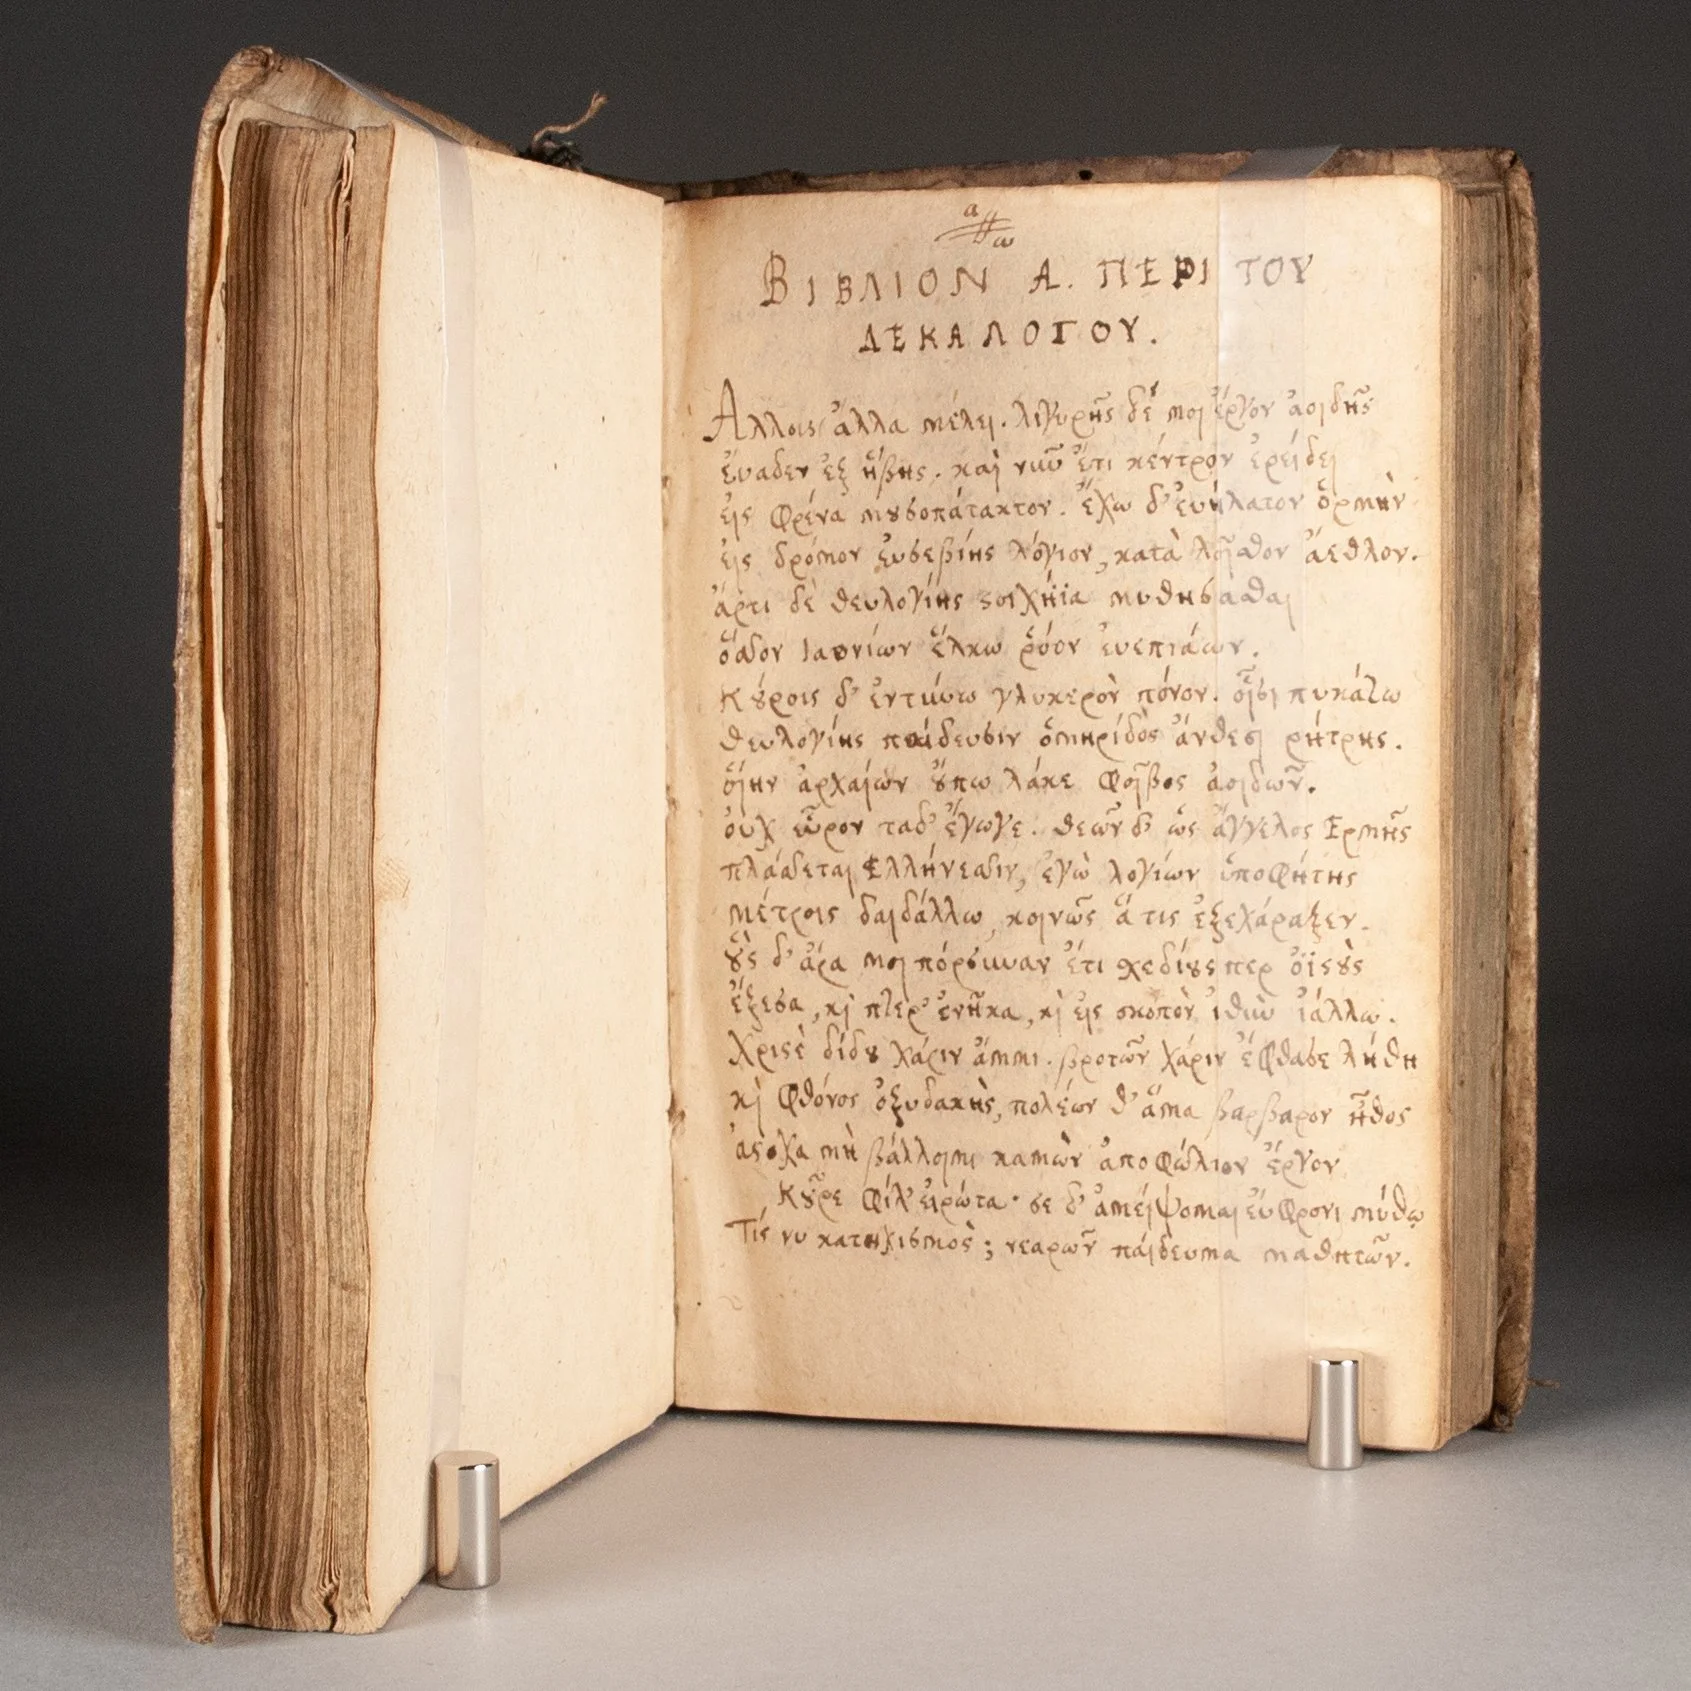 α
ω
ΒΙΒΛΙΟΝ Α. ΠΕΡΙ ΤΟΥ
ΔΕΚΑΛΟΓΟΥ.
Ἄλλοις ἄλλα μέλει. λιγυρῆς δέ μοι ἔργον ἀοιδῆς
ἔυαδεν ἐξ ἥβης. καὶ νιῦ ἔτι κέντρον ἐρείδει
εἰς φρένα μȣσοπάτακτον. ἔχω δ' ἐυήλατον ὁρμὴν
εἰς δρόμον ἐυσεβίης λόγιον, κατὰ λοῖσθον ἄεθλον.
ἄρτι δὲ θευλογίης ϛοιχήϊα μυθήσασθαι
Ἰαονίων ἕλκω ῥόον ἐυεπιάων.
Κȣ́ροις δ' ἐντύνω γλυκερὸν πόνον. οἷσι πυκάζω
θευλογίης παίδευσιν ὁμηρίδος ἄνθεσι ῥήτρης.
οἵην ἀρχαίων ȣ̓́πω λάκε φοῖβος ἀοιδῶν.
ὀυχ εὗρον ταδ' ἔγωγε. θεῶν δ' ὡς ἄγγελος Ἑρμῆς
Ἑλλήνεσσιν, ἐγὼ λογίων ὑποφήτης
μέτροις δαιδάλλω, κοινῶς ἅ τις ἐξεχάραξεν.
ȣ̔̀ς δ' ἄρα μοι πόρσυναν ἔτι σχεδίȣς περ ὀϊϛȣ̀ς
ἔξεσα, κὶ πτερ' ἐνῆκα, κὶ εἰς σκοπὸν ἰθὺ ἰάλλω.
Χριϛὲ δίδȣ χάριν ἄμμι. βροτῶν χάριν ἔφθασε λήθη
κὶ φθόνος ὀξυδακὴς, πολέων θ' ἅμα βαρβαρον ἦθος
ἀϛοχα μὴ βάλλοιμι καμὼν ἀποφώλιον ἔργον
Κȣ͂ρε φίλ' εἰρώτα· σε δ' ἀμείψομαι ἐύφρονι μύθῳ
Τίς νυ κατηχισμὸς; νεαρῶν παίδευμα μαθητῶν.